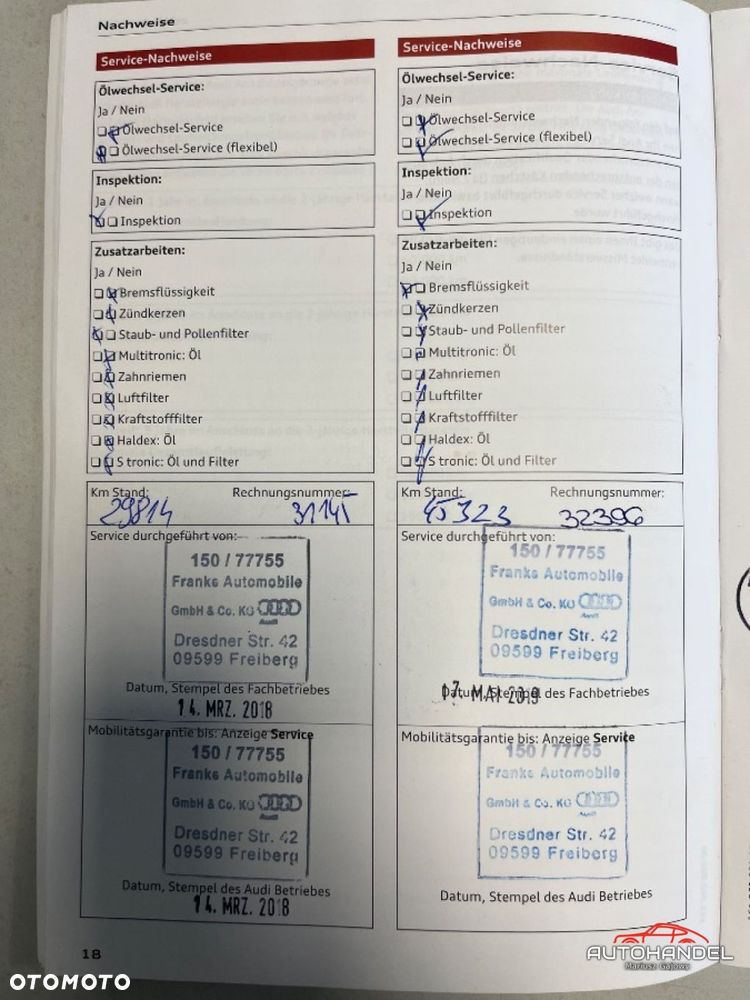 Nachweise
Service-Nachweise
Ölwechsel-Service:
Ja / Nein
Ölwechsel-Service
Ölwechsel-Service (flexibel)
Inspektion:
Ja / Nein
Inspektion
Zusatzarbeiten:
Ja / Nein
Bremsflüssigkeit
Zündkerzen
Staub- und Pollenfilter
Multitronic: Öl
Zahnriemen
Luftfilter
Kraftstofffilter
Haldex: Öl
S tronic: Öl und Filter
Km Stand: Rechnungsnummer:
29814 31145
Service durchgeführt von:
150 / 77755
Franks Automobile
GmbH & Co. KG
Audi
Dresdner Str. 42
09599 Freiberg
Datum, Stempel des Fachbetriebes
14. MRZ. 2018
Mobilitätsgarantie bis: Anzeige Service
150 / 77755
Franks Automobile
GmbH & Co. KG
Audi
Dresdner Str. 42
09599 Freiberg
Datum, Stempel des Audi Betriebes
14. MRZ. 2018
Service-Nachweise
Ölwechsel-Service:
Ja / Nein
Ölwechsel-Service
Ölwechsel-Service (flexibel)
Inspektion:
Ja / Nein
Inspektion
Zusatzarbeiten:
Ja / Nein
Bremsflüssigkeit
Zündkerzen
Staub- und Pollenfilter
Multitronic: Öl
Zahnriemen
Luftfilter
Kraftstofffilter
Haldex: Öl
S tronic: Öl und Filter
Km Stand: Rechnungsnummer:
45323 32396
Service durchgeführt von:
150 / 77755
Franks Automobile
GmbH & Co. KG
Audi
Dresdner Str. 42
09599 Freiberg
Datum, Stempel des Fachbetriebes
17. MAI 2019
Mobilitätsgarantie bis: Anzeige Service
150 / 77755
Franks Automobile
GmbH & Co. KG
Audi
Dresdner Str. 42
09599 Freiberg
Datum, Stempel des Audi Betriebes
18
OTOMOTO
AUTOHANDEL
Mariusz Gajowy